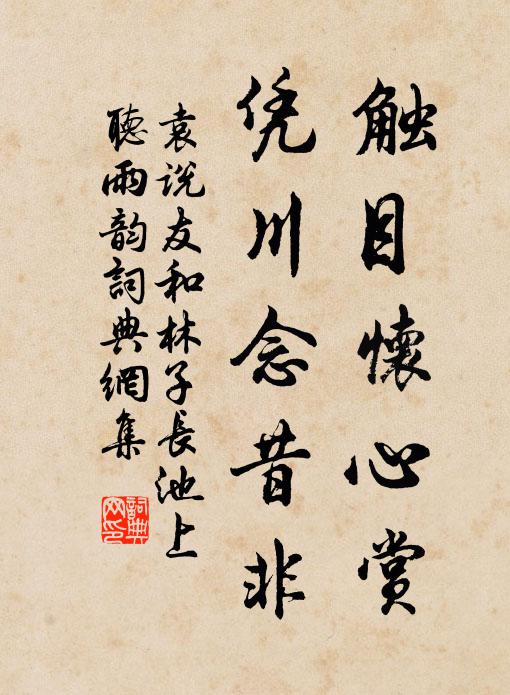 触目懷心赏
凭川念昔非
袁说友和林子長池上
聽雨韵詞典網集
詞典
网印